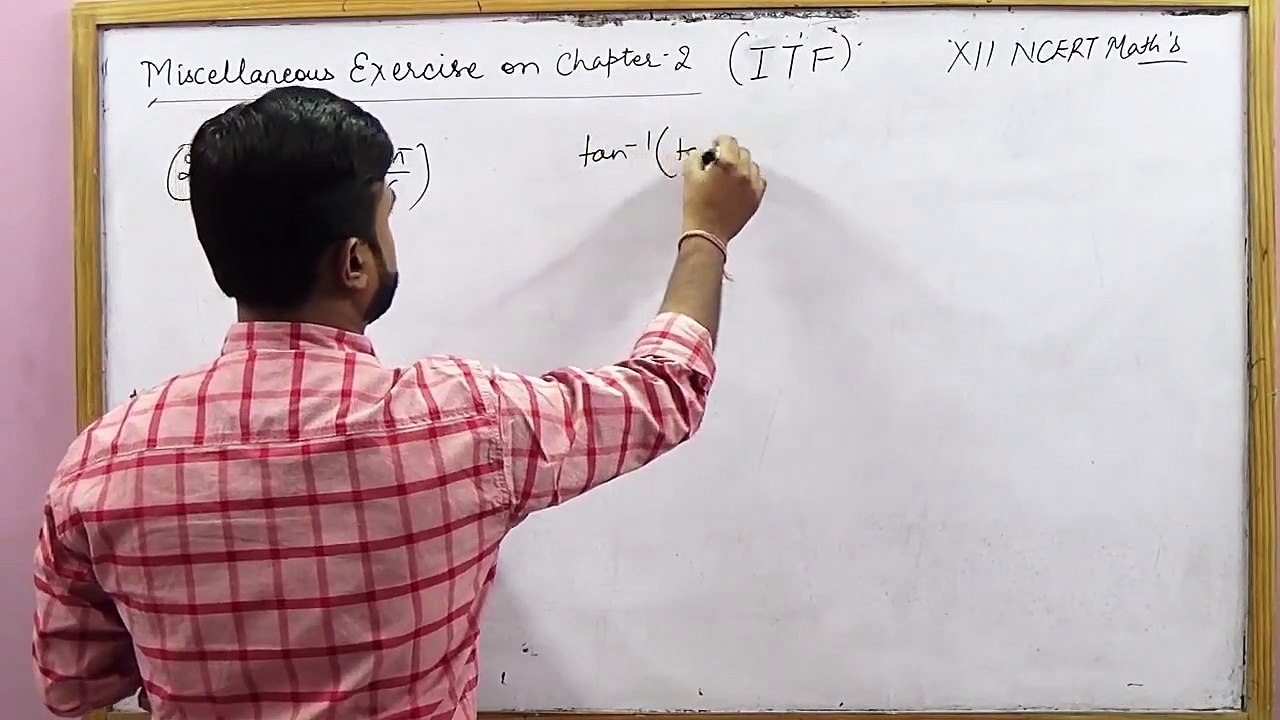 Miscellaneous Exercise on Chapter-2 (ITF) XII NCERT Math's
tan⁻¹(t